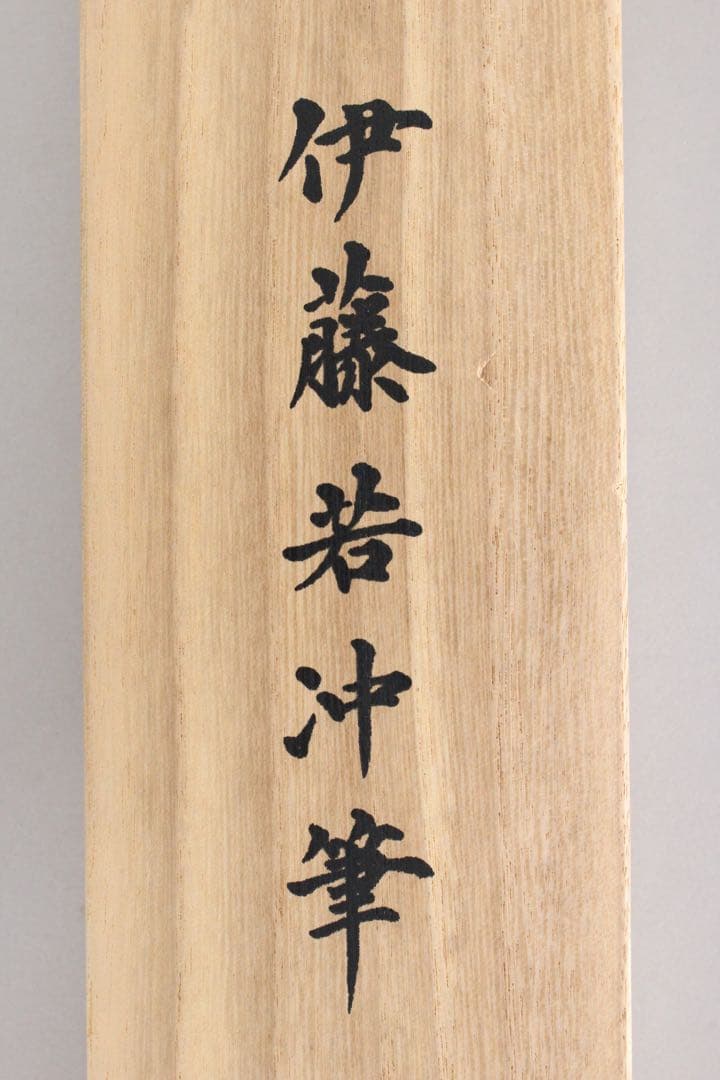 伊藤若冲筆